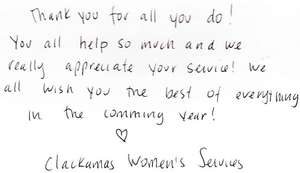 Thank you for all you do!
You all help so much and we
really appreciate your service! We
all wish you the best of everything
in the comming year!
♡
Clackamas Women's Services